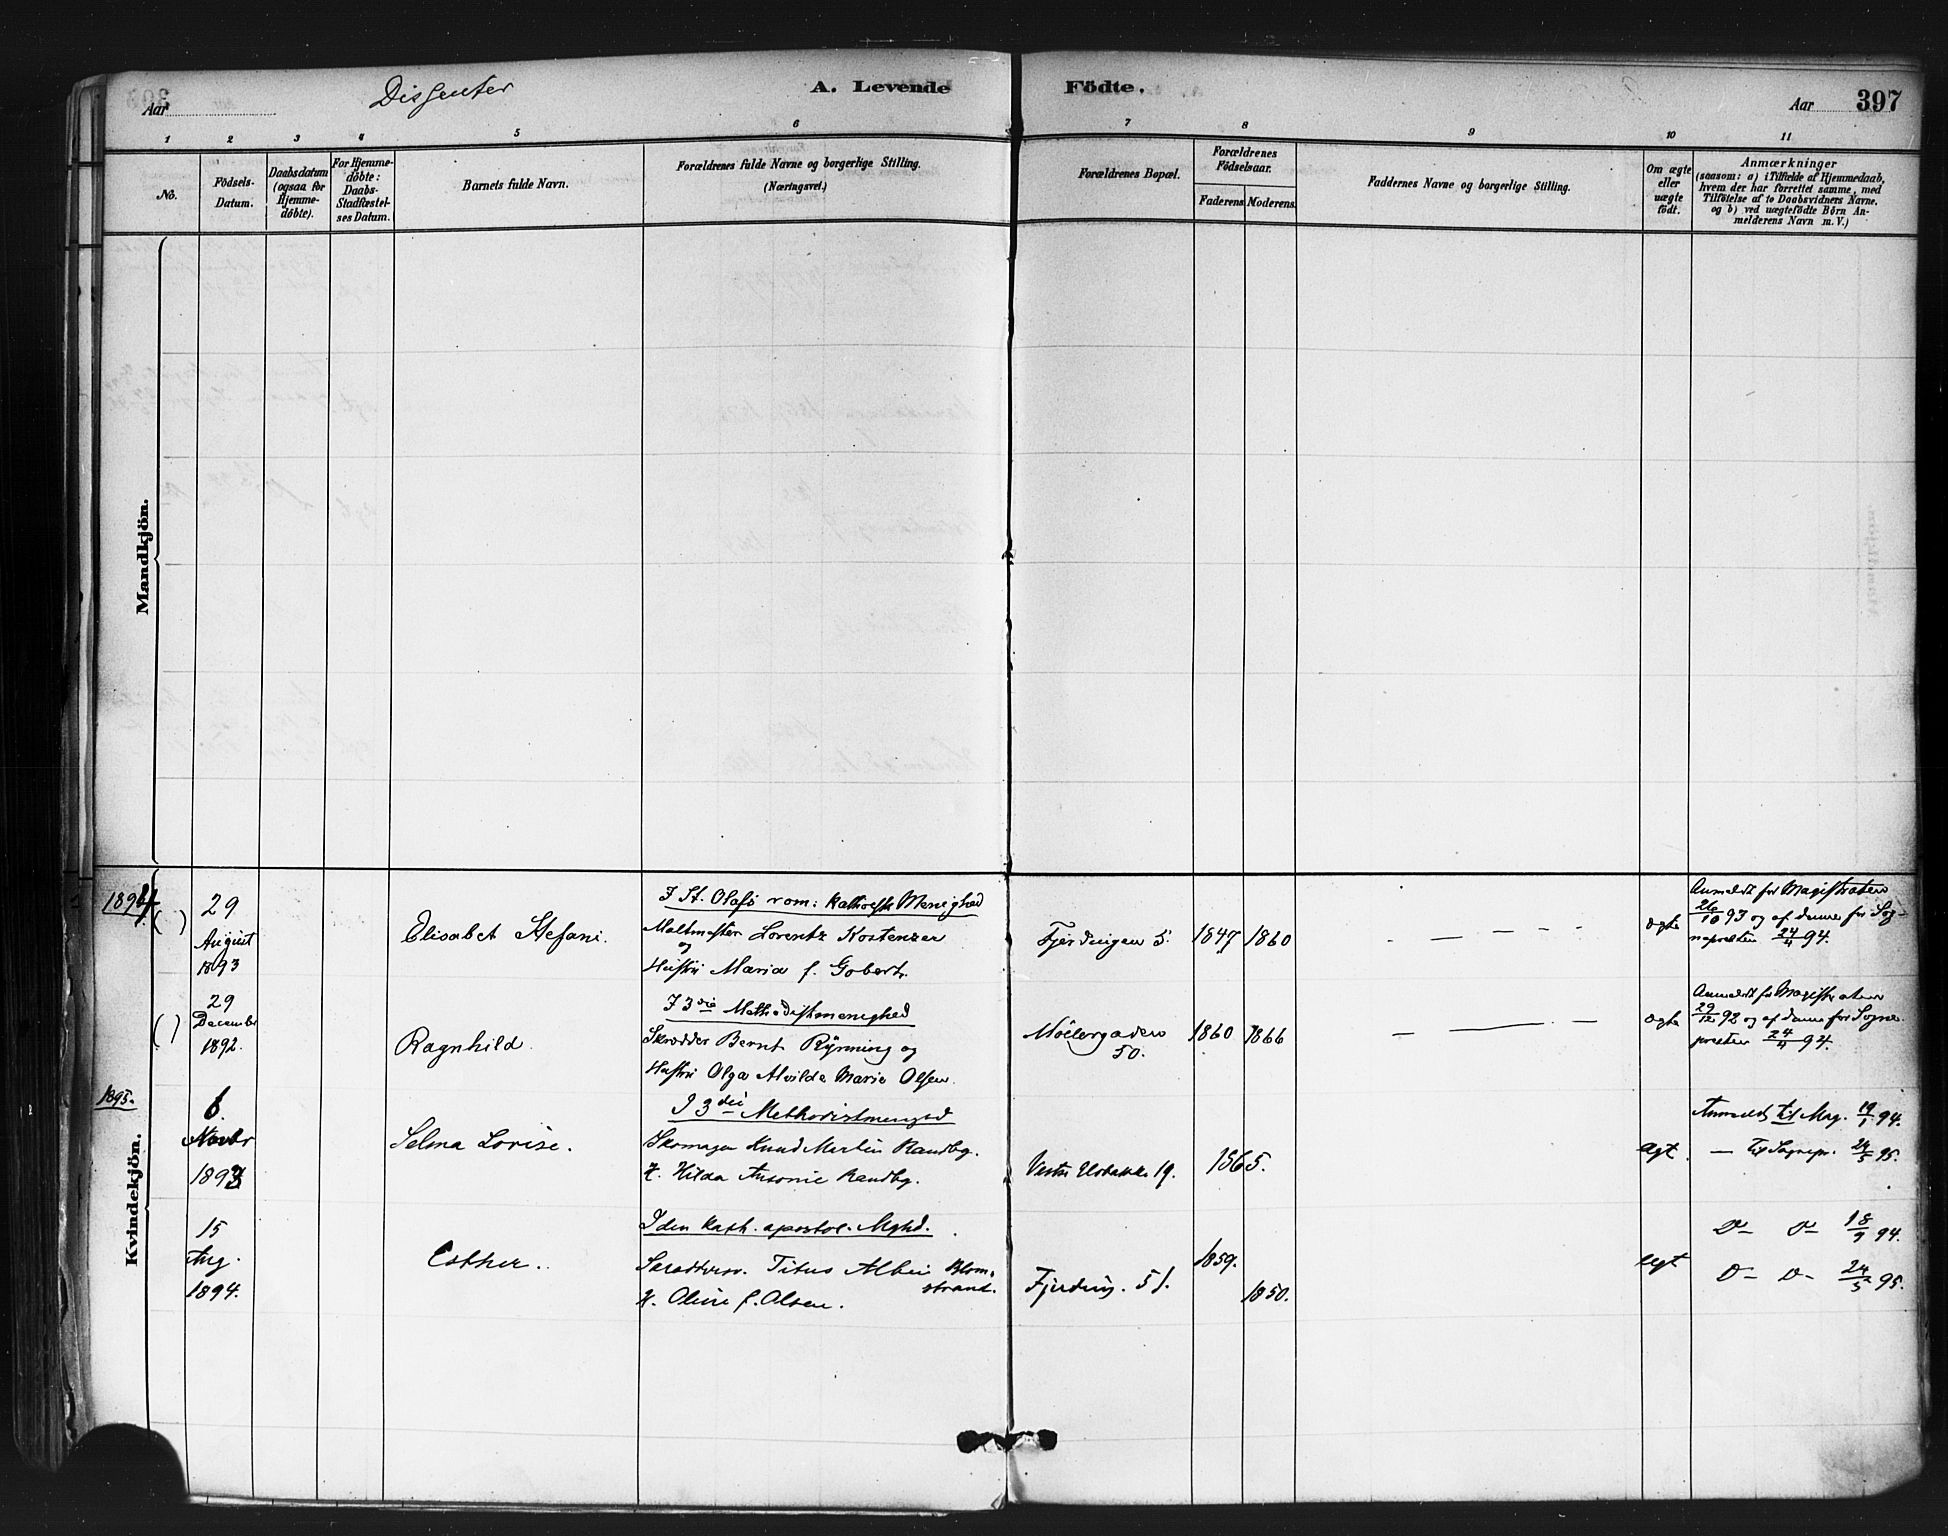 Aar
Dissenter
A. Levende
Födte.
Aar
397
1 2 3 4 5 6 7 8 9 10 11
No.
Födsels-
Datum.
Daabsdatum
(ogsaa for
Hjemme-
döbte).
For Hjemme-
döbte:
Daabs-
Stadfæstel-
ses Datum.
Barnets fulde Navn.
Forældrenes fulde Navne og borgerlige Stilling.
(Næringsvei.)
Forældrenes Bopæl.
Forældrenes
Födselsaar.
Faderens
Moderens.
Faddernes Navne og borgerlige Stilling.
Om ægte
eller
uægte
födt.
Anmærkninger
(saasom: a) i Tilfælde af Hjemmedaab,
hvem der har forrettet samme, med
Tilföielse af to Daabsvidners Navne,
og b) ved uægtefödte Börn An-
melderens Navn m. V.)
Mandkjön.
Kvindekjön.
1894
( )
29
August
1893
Elisabet Stefani.
I St. Olafs rom: katholske Menighed
Maltmester Lorentz Kostenzer
og
Hustru Maria f. Gobert.
Fjerdingen 5.
1847
1860
ægte
Anmeldt for Magistraten
26/10 93 og af denne for Sog-
nepresten 24/4 94.
( )
29
December
1892.
Ragnhild.
I 3die Methodistmenighed
Skrædder Bernt Rynning og
Hustru Olga Alvilda Marie Olsen.
Möllergaden
50.
1860
1866
ægte
Anmeldt for Magistraten
29/12 92 og af denne for Sogne-
presten 24/4 94.
1895.
6.
Novbr
1893
Selma Lovise.
I 3die Methodistmenighed
Skomager Knud Martin Randbg.
H. Hilda Antonie Randbg.
19.
1865.
ægt.
Anmeldt til Mag. 19/1 94.
— til Sognepr. 24/5 95.
15
Aug.
1894.
Esther.
I den kath. apostol. Mghd.
Titus Albin Blom-
strand.
H. Oline f. Olsen.
Fjerding. 51.
1859.
1850.
ægt
D— D— 18/9 94.
D— D— 24/5 95.